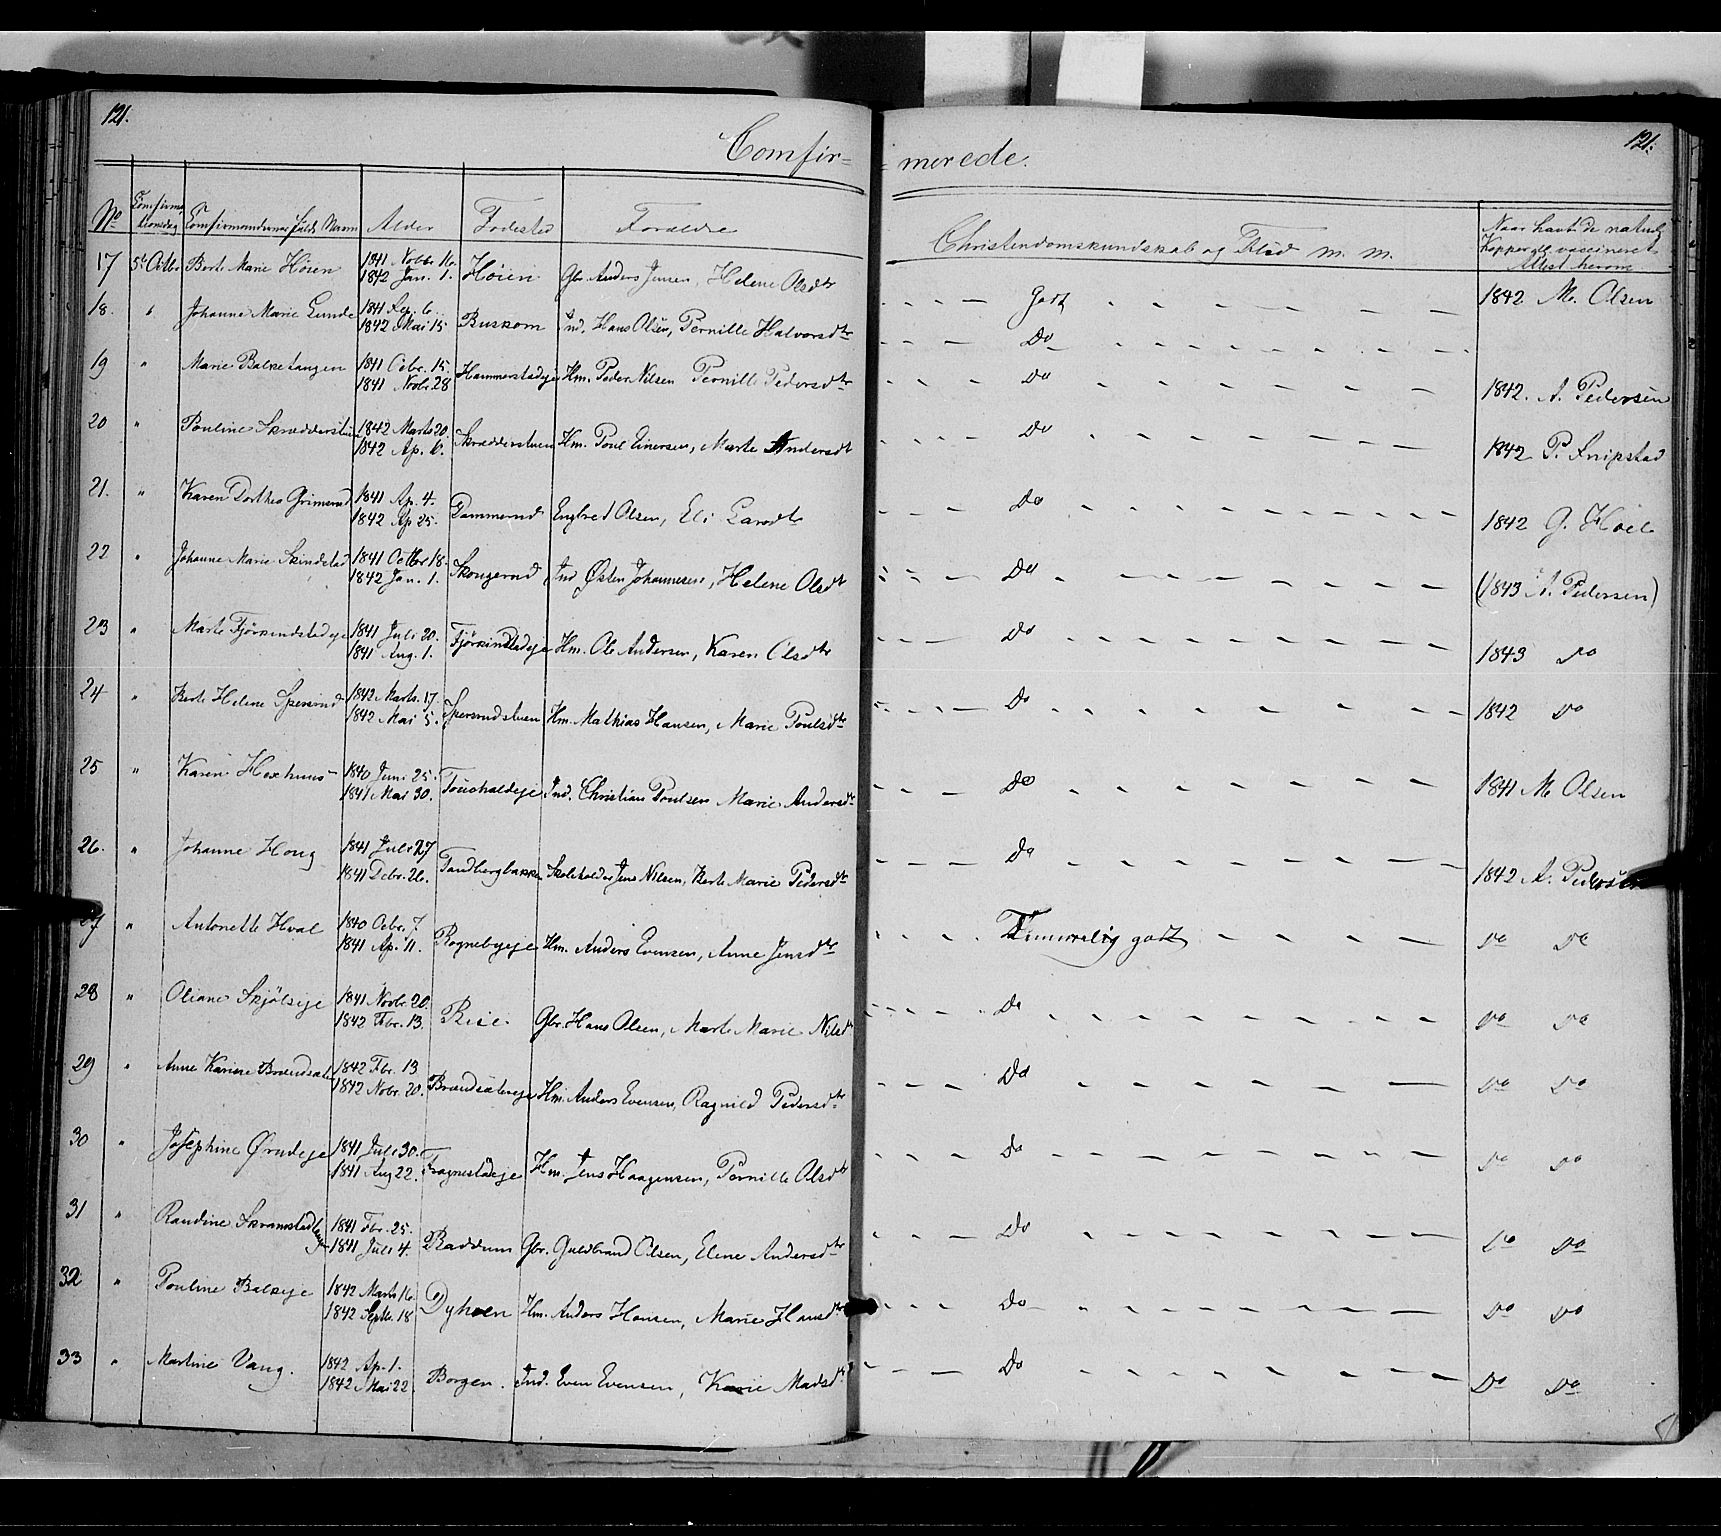 121.
121.
Comfir= =merede.
No Comfirmationsdag Comfirmandernes fulde Navn Alder Fødested Forældre Christendomskundskab og Flid m. m. Naar havt de naturl. Kopper ell. vaccineret Attest herom
17 5te Octbr Berte Marie Höien 1841 Novbr. 16. 1842 Jan. 1. Höien Gbr. Anders Jensen, Helene Olsdtr Godt 1842 M. Olsen
18. " Johanne Marie Lunde 1841 Sep. 6. 1842 Mai 15 Buskom Ind. Hans Olsen, Pernille Halvorsdtr Do
19 " Marie Balketangen 1841 Octbr. 15. 1841 Novbr. 28 Hammerstadeje Hm. Peder Nilsen Pernille Pedersdtr Do 1842. A. Pedersen
20 " Pouline Skrædderstuen 1842 Marts 20 1842 Ap. 6. Skrædderstuen Hm. Poul Einersen, Marte Andersdt Do 1842 P. Fnipstad
21. " Karen Dorthea Grimerud 1841 Ap. 4. 1842 Ap 25. Dammerud Engbret Olsen, Eli Larsdtr Do 1842 G. Hoel
22 " Johanne Marie Skindstad 1841 Octbr 18. 1842 Jan. 1. Skongerud Ind Østen Johannesen, Helene Olsdt Do (1843 A. Pedersen)
23 " Marte Fjörkindstadeje 1841 Juli 20. 1841 Aug. 1. Fjörkindstadeje Hm. Ole Andersen, Karen Olsdtr Do 1843 Do
24 " Berte Helene Spererud 1842 Marts. 17. 1842 Mai 5. Spererudstuen Hm. Mathias Hansen, Marie Poulsdtr Do 1842 Do
25 " Karen Hexhuus 1840 Juni 25. 1841 Mai 30. Ind. Christian Poulsen Marie Andersdtr Do 1841 M. Olsen
26. " Johanne Houg 1841 Juli 27 1841 Debr. 26. Sandbergbakken Skoleholder Jens Nilsen, Berte Marie Pedersdtr Do 1842 A. Pedersen
27 " Antonette Hval 1840 Octbr. 7. 1841 Ap. 11. Rognebyeje Hm. Anders Evensen, Anne Jensdtr Temmelig godt Do Do
28 " Oliane Skjölseje 1841 Novbr. 20. 1842 Fbr. 13. Gbr. Hans Olsen, Marte Marie Nilsdtr Do Do Do
29 " Anne Karine Brændsæter 1842 Fbr. 13 1842 Nobr. 20. Brændsætereje Hm. Anders Evensen, Ragnild Pedersdtr Do Do Do
30 " Josephine Örudeje 1841 Juli 30. 1841 Aug 22. Fragnestadeje Hm. Jens Haagensen, Pernille Olsdtr Do Do Do
31 " Randine Skramstadhagen 1841 Fbr. 25. 1841 Juli 4. Raddum Gbr. Guldbrand Olsen, Elene Andersdtr Do Do Do
32 " Pouline Balkeje 1842 Marts 16. 1842 Septbr. 18 Dyhren Hm. Anders Hansen, Marie Hansdtr Do Do Do
33 " Martine Vang. 1842 Ap. 1. 1842 Mai 22. Borgen. Ind. Even Evensen, Karie Madsdtr Do Do Do